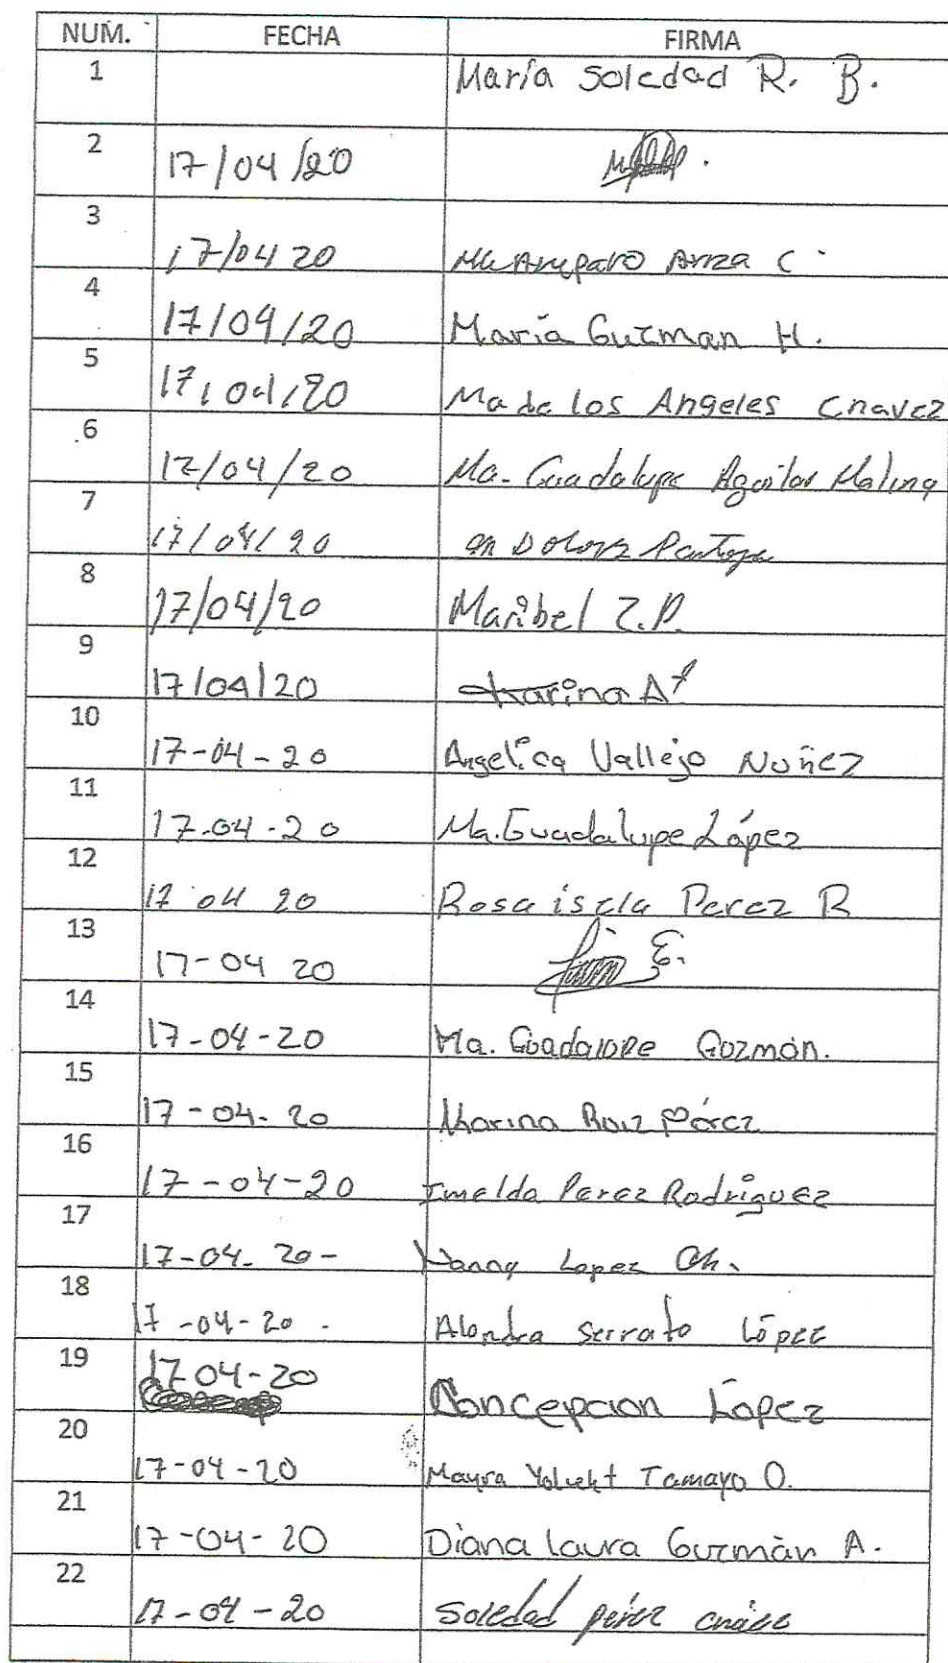 NUM. FECHA FIRMA
1 María Soledad R. B.
2 17/04/20
3 17/04 20 Ma Amparo Ariza C.
4 17/04/20 María Guzman H.
5 17/04/20 Ma de los Angeles Chavez
6 17/04/20 Ma. Guadalupe Aguilar Molina
7 17/04/20 Dolores Pantoja
8 17/04/20 Maribel Z.P.
9 17/04/20 Karina A
10 17-04-20 Angelica Vallejo Nuñez
11 17-04-20 Ma. Guadalupe López
12 17 04 20 Rosa isela Perez R
13 17-04 20 E.
14 17-04-20 Ma. Guadalupe Guzmán.
15 17-04-20 Marina Ruiz Pérez
16 17-04-20 Imelda Perez Rodriguez
17 17-04-20- Nanny Lopez Ch.
18 17-04-20. Alondra Serrato López
19 17 04-20 Concepcion López
20 17-04-20 Mayra Tamayo O.
21 17-04-20 Diana laura Guzmán A.
22 17-04-20 Soledad pérez